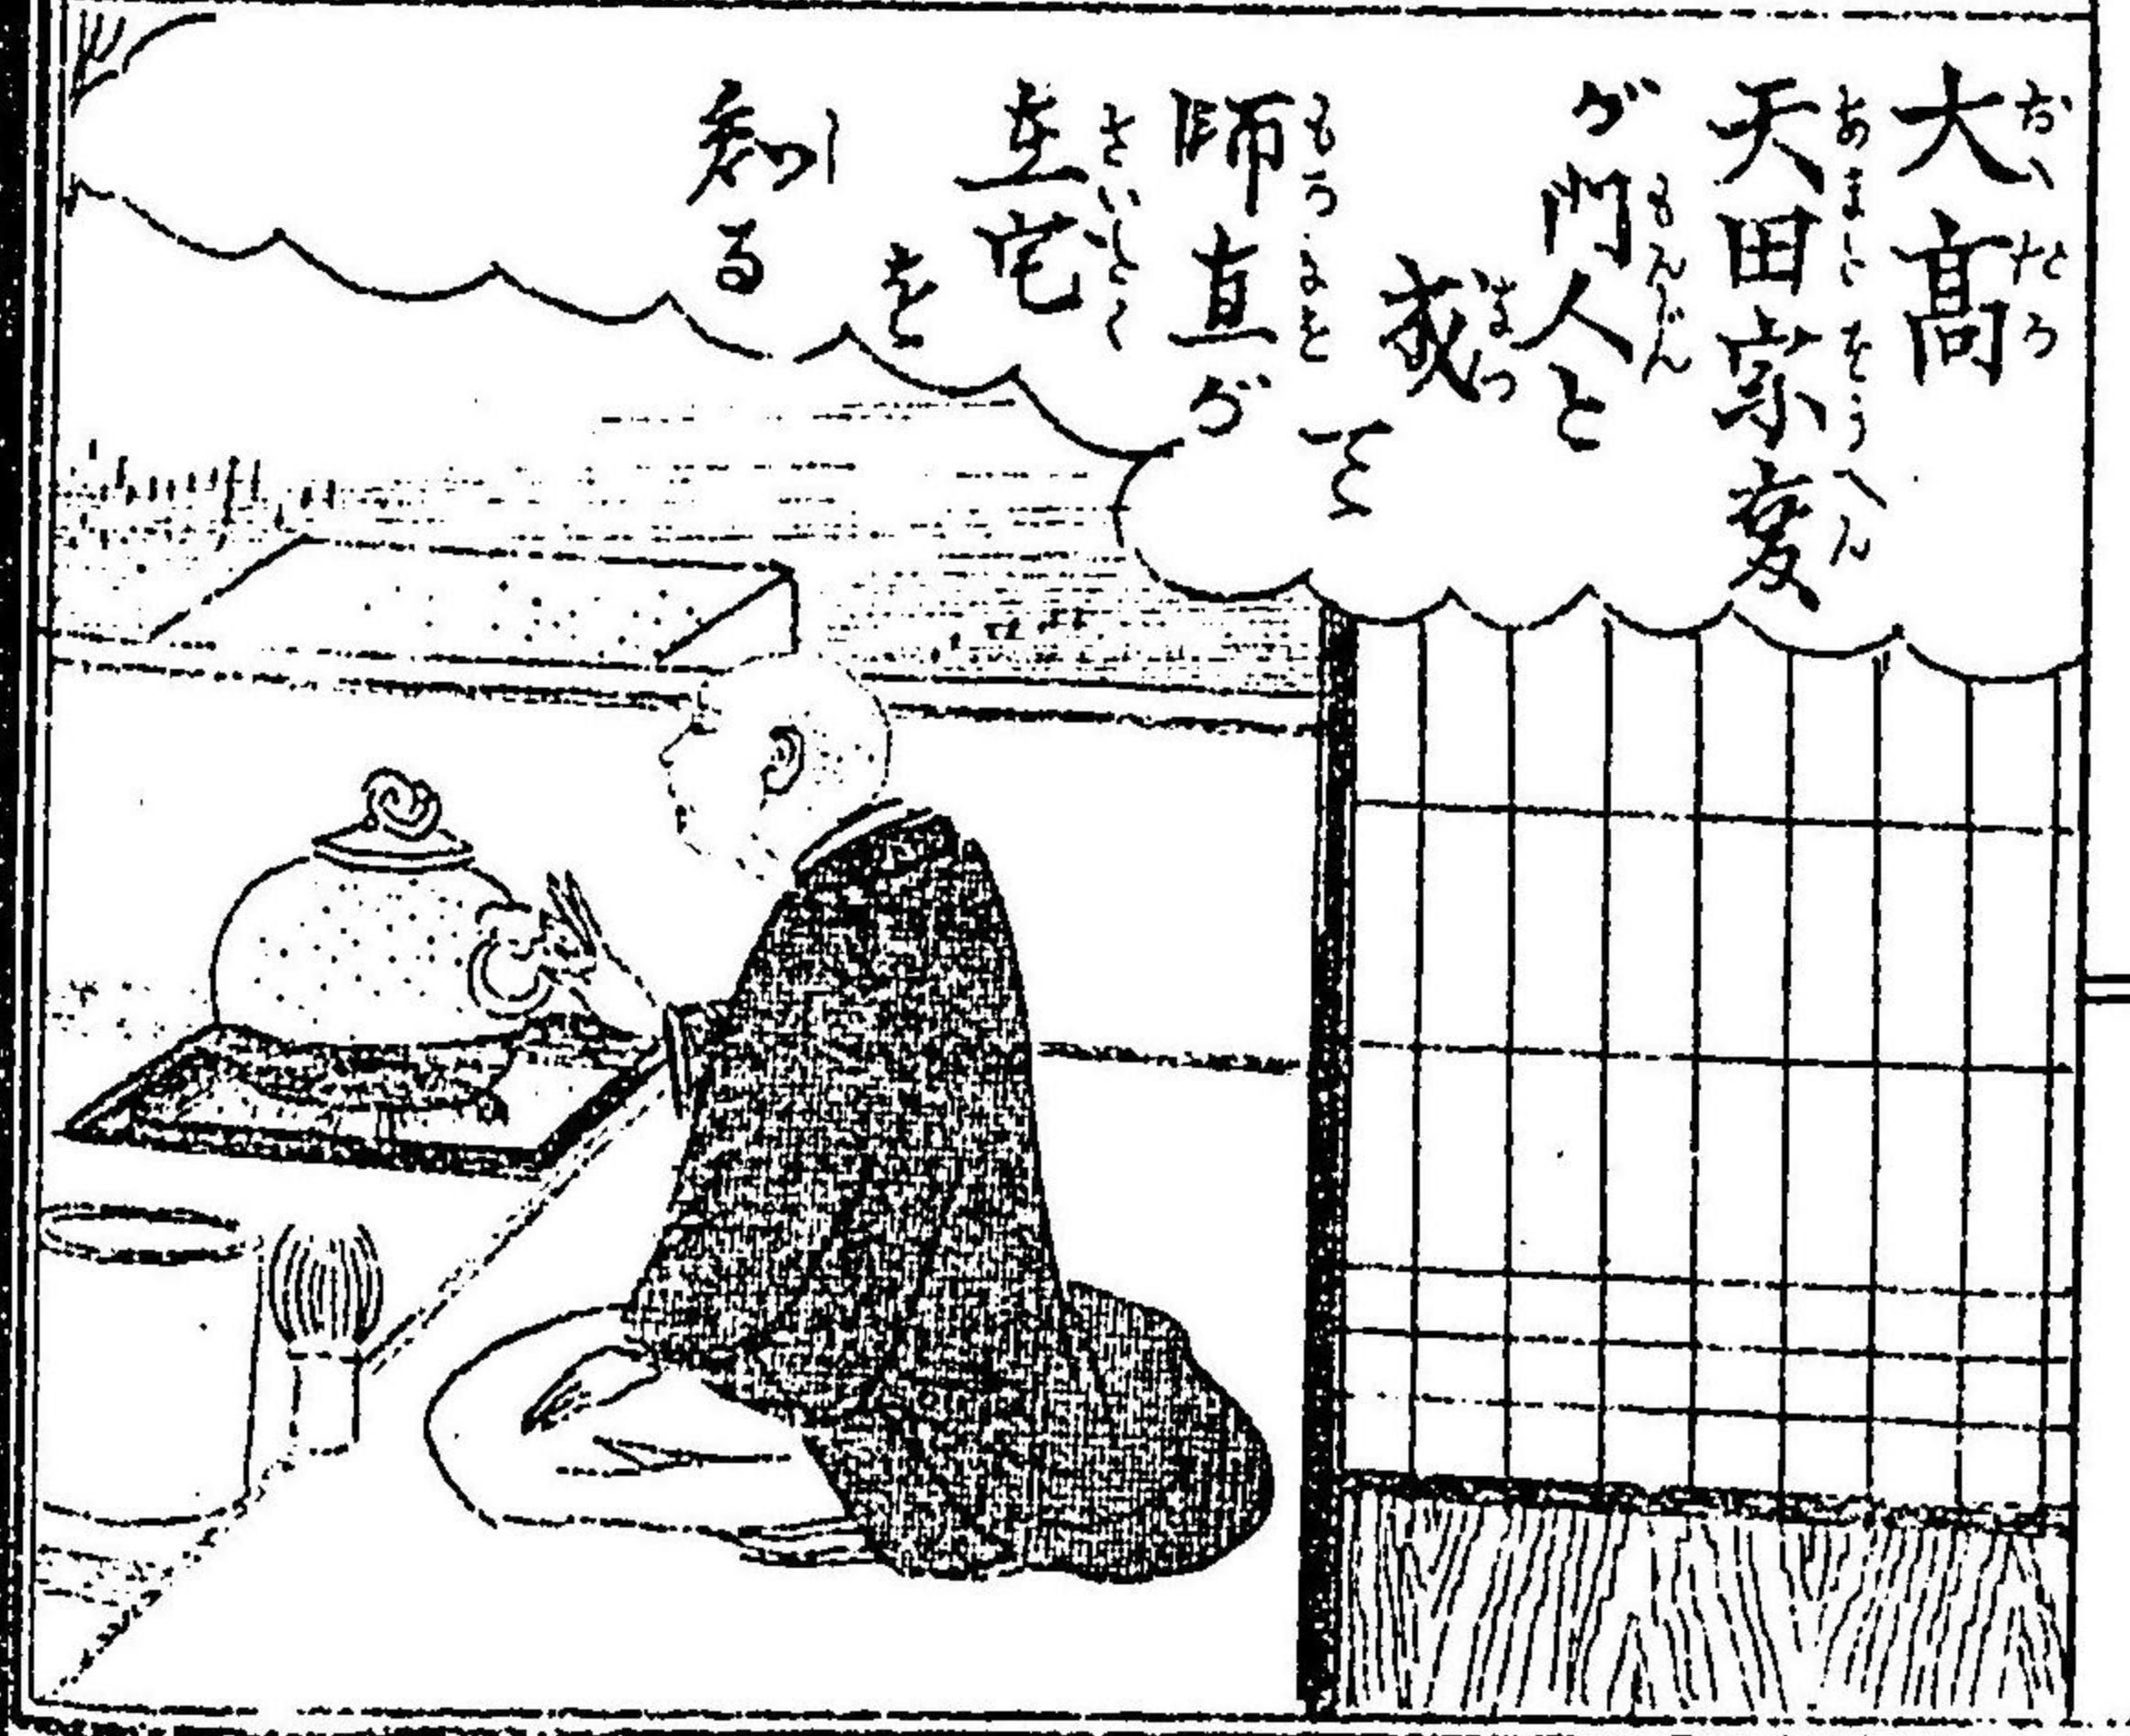 大高
天田宗変
が門人と
成て
師直が
在宅
を
知る